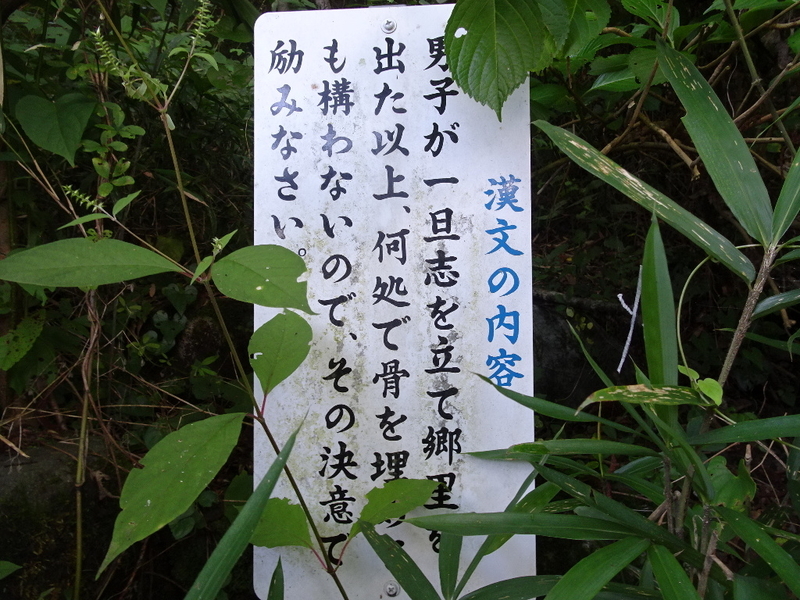 漢文の内容
男子が一旦志を立て郷里を
出た以上、何処で骨を埋
も構わないので、その決意で
励みなさい。